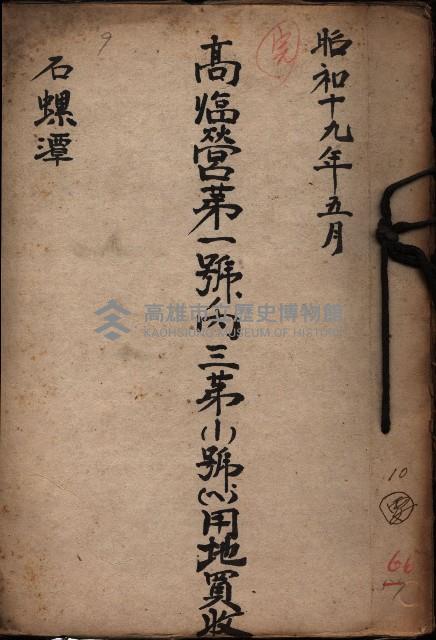 昭和十九年五月
完
高臨營第一號ノ內三第(小)號(八)用地買收
石螺潭
9
高雄市立歷史博物館
KAOHSIUNG MUSEUM OF HISTORY
10
66